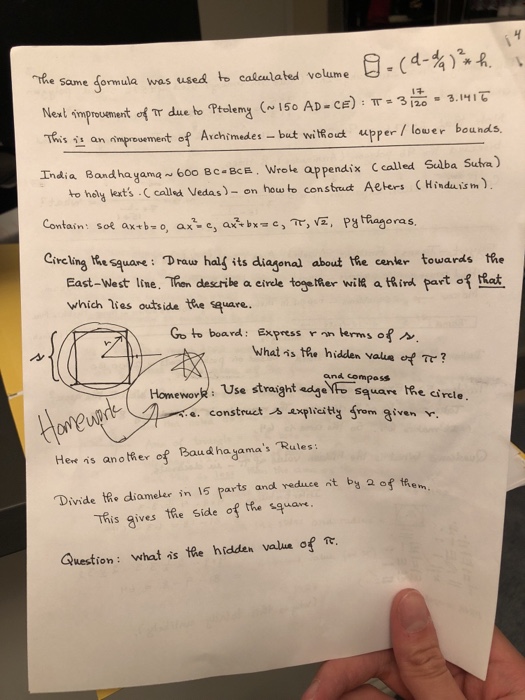 The same formula was used to calculated volume = (d-d/9)²*h.
Next improvement of π due to Ptolemy (~150 AD=CE): π = 3 17/120 = 3.1416
This is an improvement of Archimedes - but without upper/lower bounds.
India Bandhayama ~ 600 BC=BCE. Wrote appendix (called Sulba Sutra)
to holy text's. (called Vedas) - on how to construct Aelters (Hinduism).
Contain: sol ax+b=0, ax²=c, ax²+bx=c, π, √2, pythagoras.
Circling the square: Draw half its diagonal about the center towards the
East-West line. Then describe a circle together with a third part of that
which lies outside the square.
Go to board: Express r in terms of s.
What is the hidden value of π?
s
r
Homework: Use straight edge and compass to square the circle.
i.e. construct s explicitly from given r.
Homework
Here is another of Baudhayama's Rules:
Divide the diameter in 15 parts and reduce it by 2 of them.
This gives the side of the square.
Question: what is the hidden value of π.